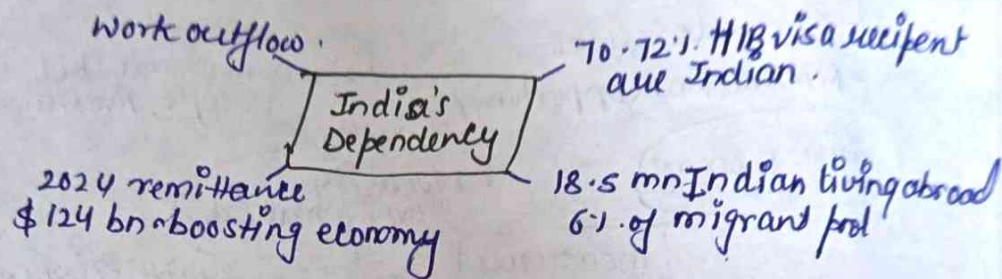 Work outflow.
70.72%. H1B visa recipent
are Indian.
India's
Dependency
2024 remittance
$124 bn boosting economy
18.5 mn Indian living abroad
6%. of migrant